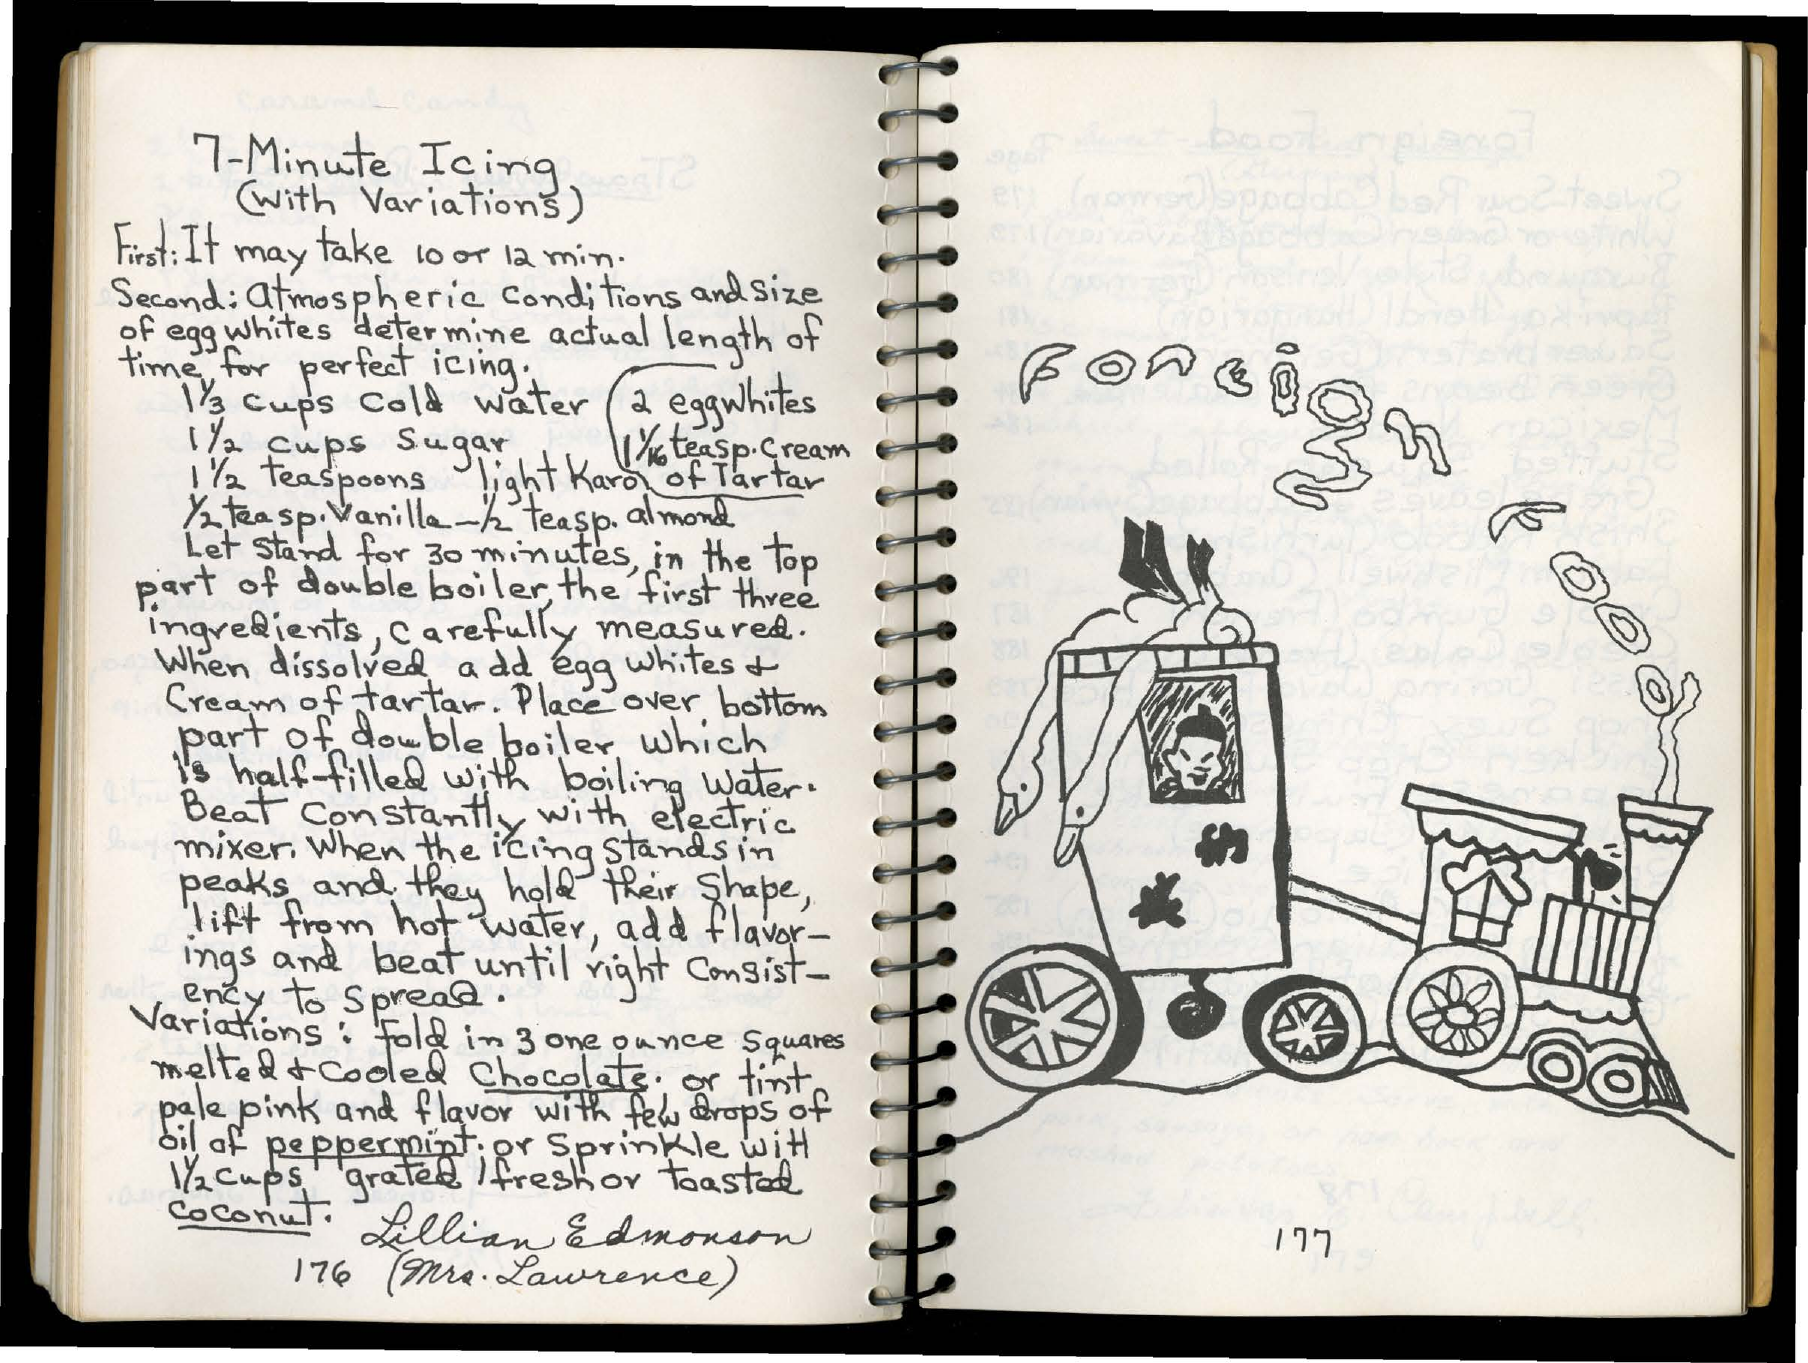 7-Minute Icing
(With Variations)
First: It may take 10 or 12 min.
Second: Atmospheric Conditions and size
of egg whites determine actual length of
time for perfect icing.
1⅓ cups cold water
1½ cups Sugar
1½ teaspoons light Karo
2 egg whites
1/16 teasp. Cream
of Tartar
½ teasp. Vanilla - ½ teasp. almond
Let Stand for 30 minutes, in the top
part of double boiler, the first three
ingredients, carefully measured.
When dissolved add egg whites &
Cream of tartar. Place over bottom
part of double boiler which
is half-filled with boiling water.
Beat Constantly with electric
mixer. When the icing stands in
peaks and they hold their Shape,
lift from hot water, add flavor-
ings and beat until right Consist-
ency to spread.
Variations: fold in 3 one ounce squares
melted & cooled Chocolate. or tint
pale pink and flavor with few drops of
oil of peppermint. or Sprinkle with
1½ cups grated fresh or toasted
coconut.
Lillian Edmonson
176 (Mrs. Lawrence)
Foreign
Foods
177